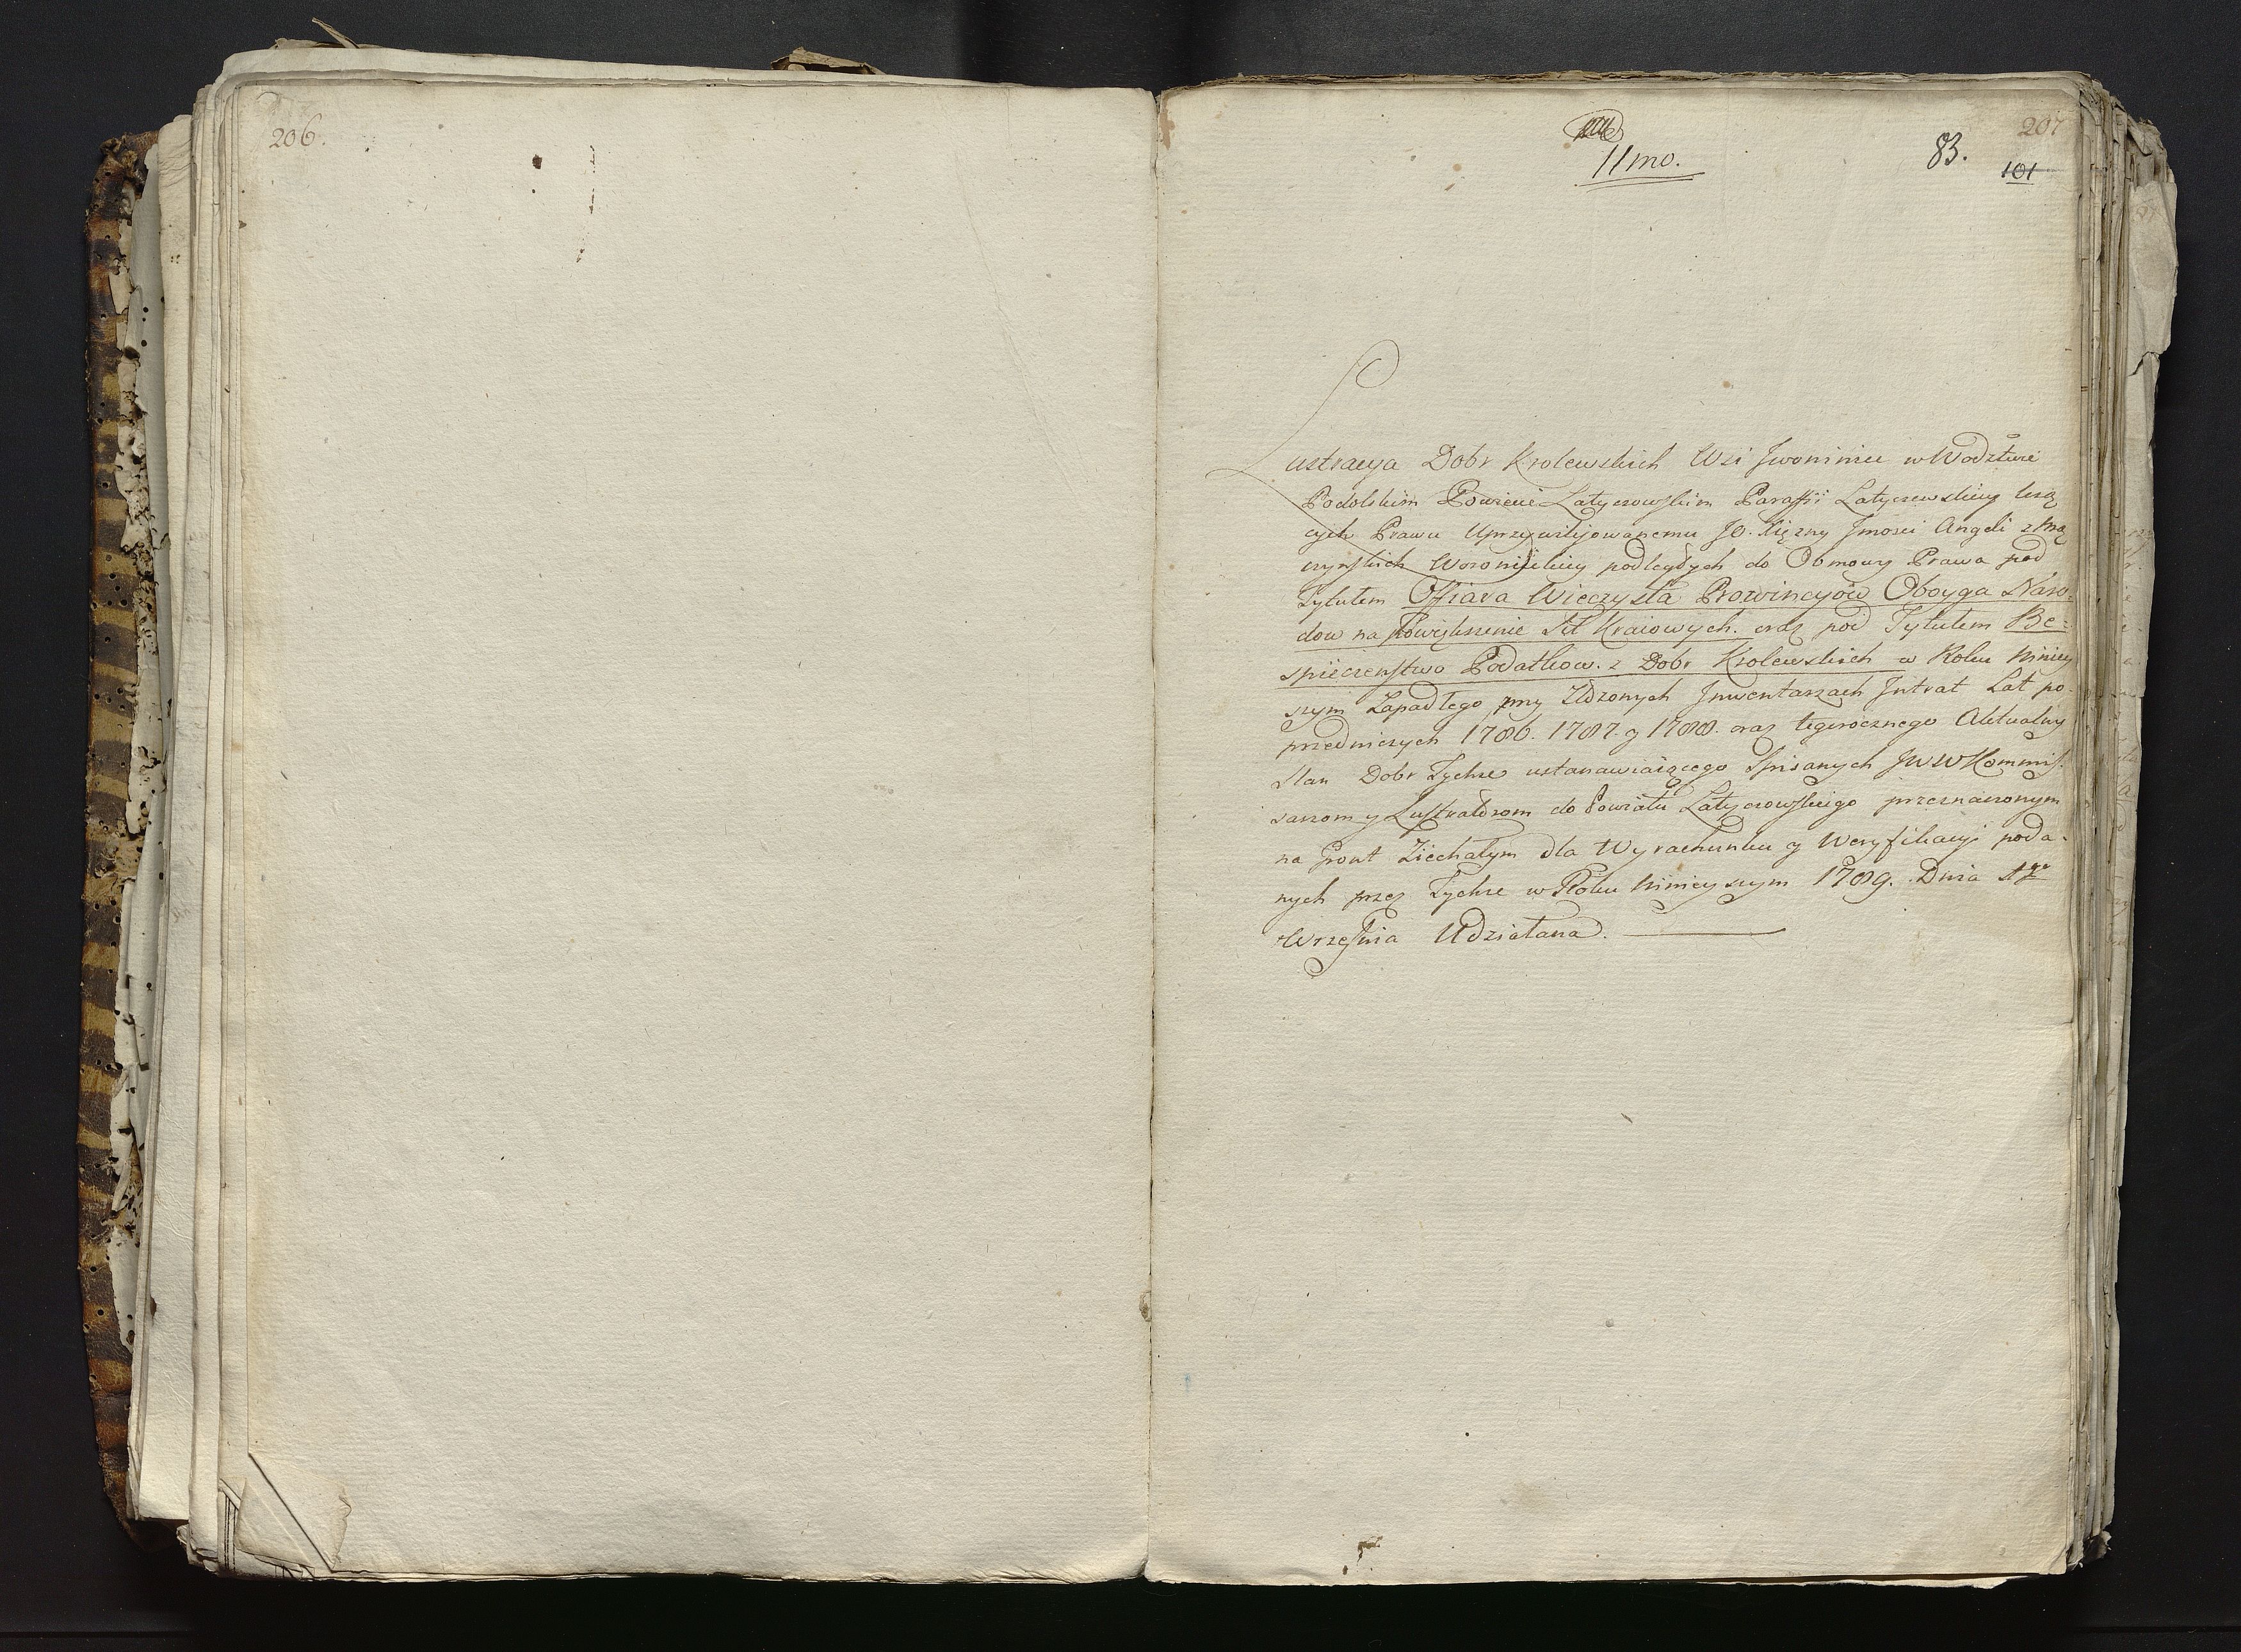 206.
207
11mo.
83.
101
Lustracya Dobr Krolewskich Wsi Jwoniniec w Wodztwie
Podolskim Powiecie Latyczowskim Paraffii Latyczewskiey leżą
cych Prawu Uprzywilijowanemu JO. Xiężny Jmosci Angeli z
Woronieckiey podległych do Obmowy Prawa pod
Tytułem Offiara Wieczysta Prowincyow Oboyga Naro=
dow na Powiększenie Sił Kraiowych. oraz pod Tytułem Be=
spieczenstwo Podatkow. z Dobr Krolewskich w Roku Niniey
szym Zapadłego przy Zldzonych Jnwentarzach Jntrat Lat po=
przedniczych 1786. 1787. y 1788. oraz tegorocznego Aktualny
Stan Dobr Tychże ustanawiaiącego Spisanych JWW Kommis=
sarzom y Lustratorom do Powiatu Latyczowskiego przeznaczonym
na Gront Ziechałym dla Wyrachunku y Weryfikacyi poda=
nych przez Tychże w Roku Ninieyszym 1789. Dnia
Września Udziałana.